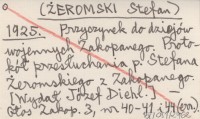 (ŻEROMSKI Stefan)
1925. Przyczynek do dziejów
wojennych Zakopanego. Proto-
kół przesłuchania p. Stefana
Żeromskiego z Zakopanego.
[Wydał Józef Diehl.] –
Głos Zakop. 3, nr 40-41 i 44